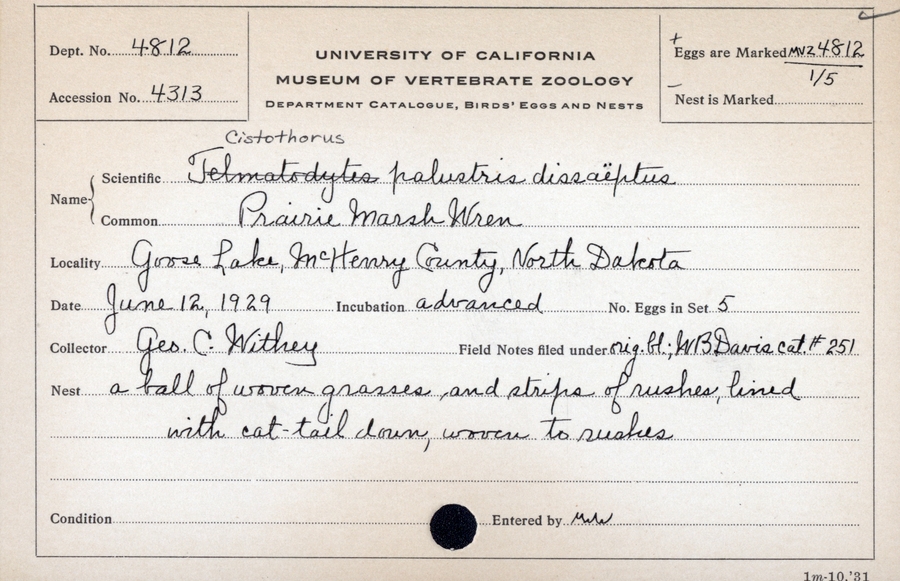 Dept. No. 4812
Accession No. 4313
UNIVERSITY OF CALIFORNIA
MUSEUM OF VERTEBRATE ZOOLOGY
DEPARTMENT CATALOGUE, BIRDS' EGGS AND NESTS
+
Eggs are Marked MVZ 4812
1/5
–
Nest is Marked
Cistothorus
Name
Scientific Telmatodytes palustris dissaëptus
Common Prairie Marsh Wren
Locality Goose Lake, McHenry County, North Dakota
Date June 12, 1929 Incubation advanced No. Eggs in Set 5
Collector Geo. C. Withey Field Notes filed under orig. bl.; WB Davis cat. # 251
Nest a ball of woven grasses and strips of rushes, lined
with cat-tail down, woven to rushes
Condition Entered by
1m-10,'31